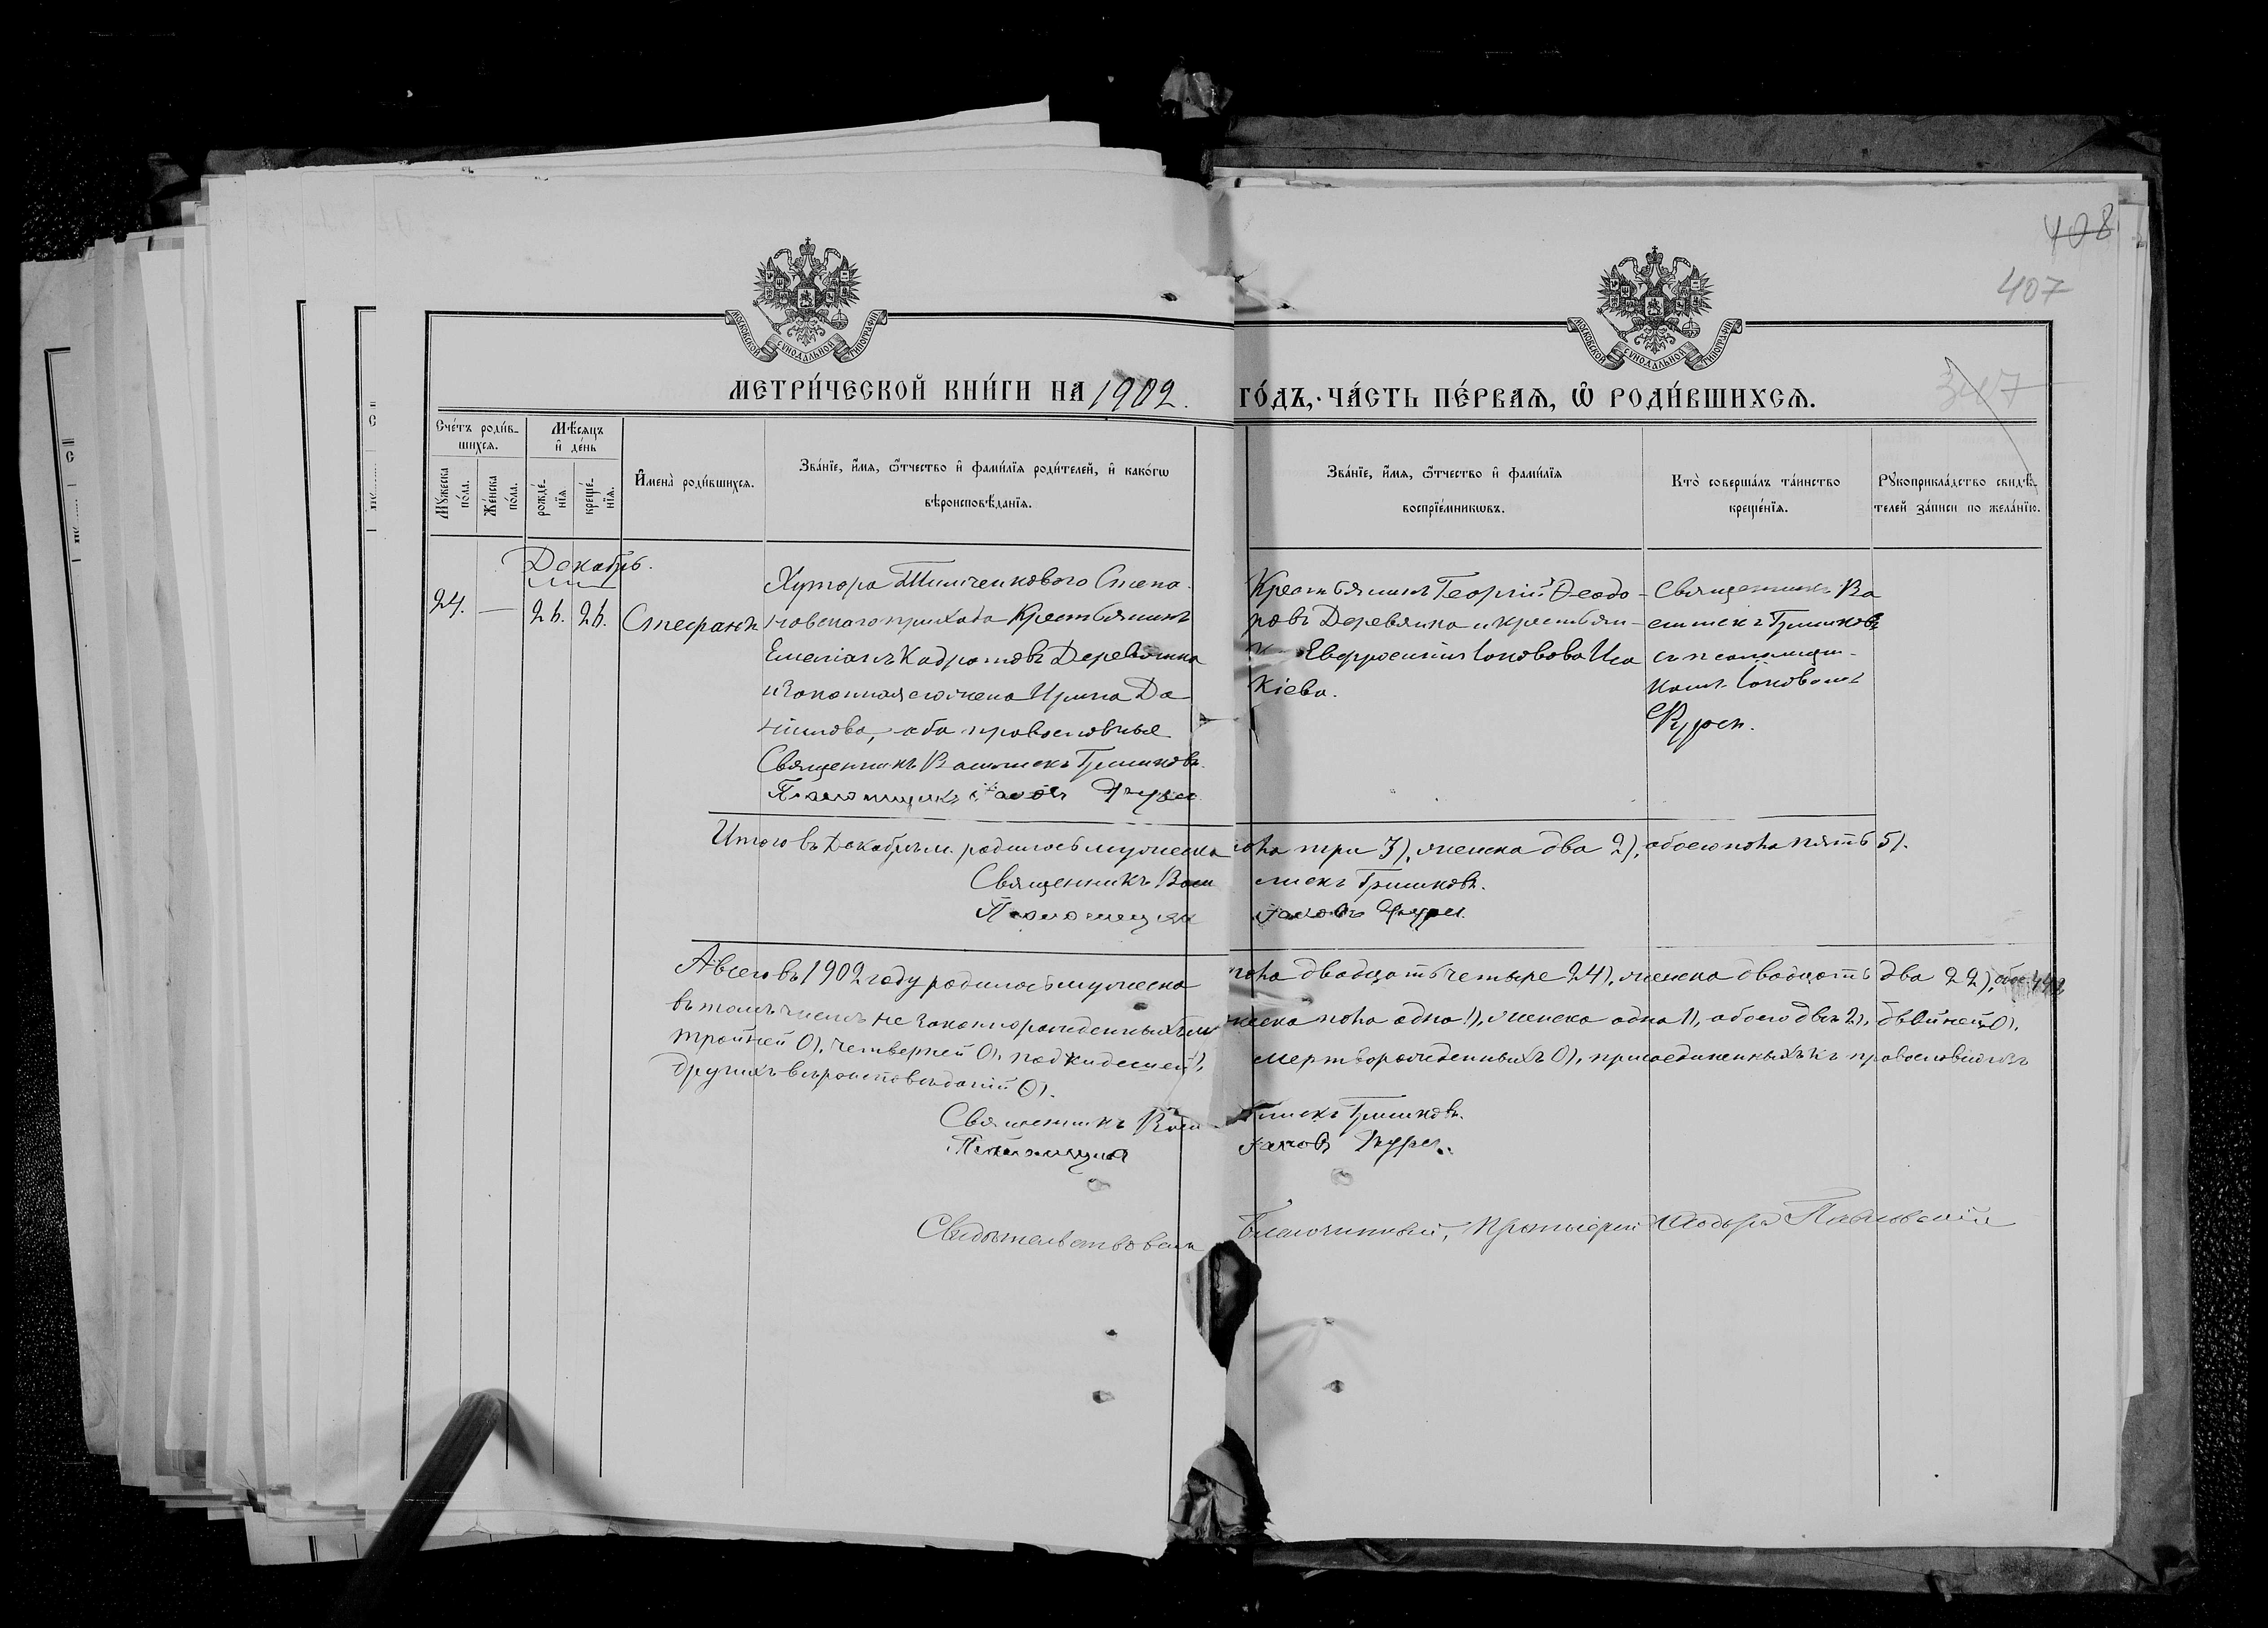 408
407
347
МОСКОВСКОЙ СѴНОДАЛЬНОЙ ТИПОГРАФІИ
МОСКОВСКОЙ СѴНОДАЛЬНОЙ ТИПОГРАФІИ
МЕТРИ́ЧЕСКОЙ КНИ́ГИ НА 1902. ГО́ДЪ, ЧА́СТЬ ПЕ́РВАѦ, Ѡ҆ РОДИ́ВШИХСѦ.
Сче́тъ роди́в-
шихсѧ.
Мꙋ́жеска по́ла.
Же́нска по́ла.
Мѣ́сѧцъ и҆ де́нь
рожде́-нїѧ
креще́-нїѧ.
И҆мена̀ роди́вшихсѧ.
Зва́нїе, и҆́мѧ, ѻ҆́тчество и҆ фами́лїѧ роди́телей, и҆ како́гѡ
вѣроисповѣ́данїѧ.
Зва́нїе, и҆́мѧ, ѻ҆́тчество и҆ фами́лїѧ
воспрїе́мникѡвъ.
Кто̀ соверша́лъ та́инство
креще́нїѧ.
Рꙋкоприкла́дство свидѣ́-
телей за́писи по жела́нїю.
Декабрь.
24. — 26. 26. Стефанъ
Хутора Тимченкового Степа-
новскаго прихода Крестьянинъ
Емеліанъ Кодратовъ Деревянко
и законная его жена Ирина Да-
ніилова, оба православные
Священникъ Василискъ Гришковъ.
Псаломщикъ Іаковъ
Крестьянинъ Георгій Ѳеодо-
ровъ Деревянко и крестьян-
ка Евфросинія Іаковова Иса
Кіева.
Священникъ Ва
силискъ Гришковъ
съ псаломщи-
комъ Іаковомъ
Итого въ Декабрѣ м. родилось мужеска пола три 3), женска два 2), обоего пола пять 5).
Священникъ Василискъ Гришковъ.
Псаломщикъ Іаковъ
А всего въ 1902 году родилось мужеска пола двадцать четыре 24), женска двадцать два 22),
въ томъ числѣ незаконнорожденныхъ мужеска пола одно 1), женска одна 1), обоего двое 2), двойней 0),
тройней 0), четверней 0), подкидышей мертворожденныхъ 0), присоединенныхъ къ православію изъ
другихъ вѣроисповѣданій 0).
Священникъ Василискъ Гришковъ.
Псаломщикъ Іаковъ
Свидѣтельствовалъ Благочинный, Протоіерей Ѳеодоръ Павловскій